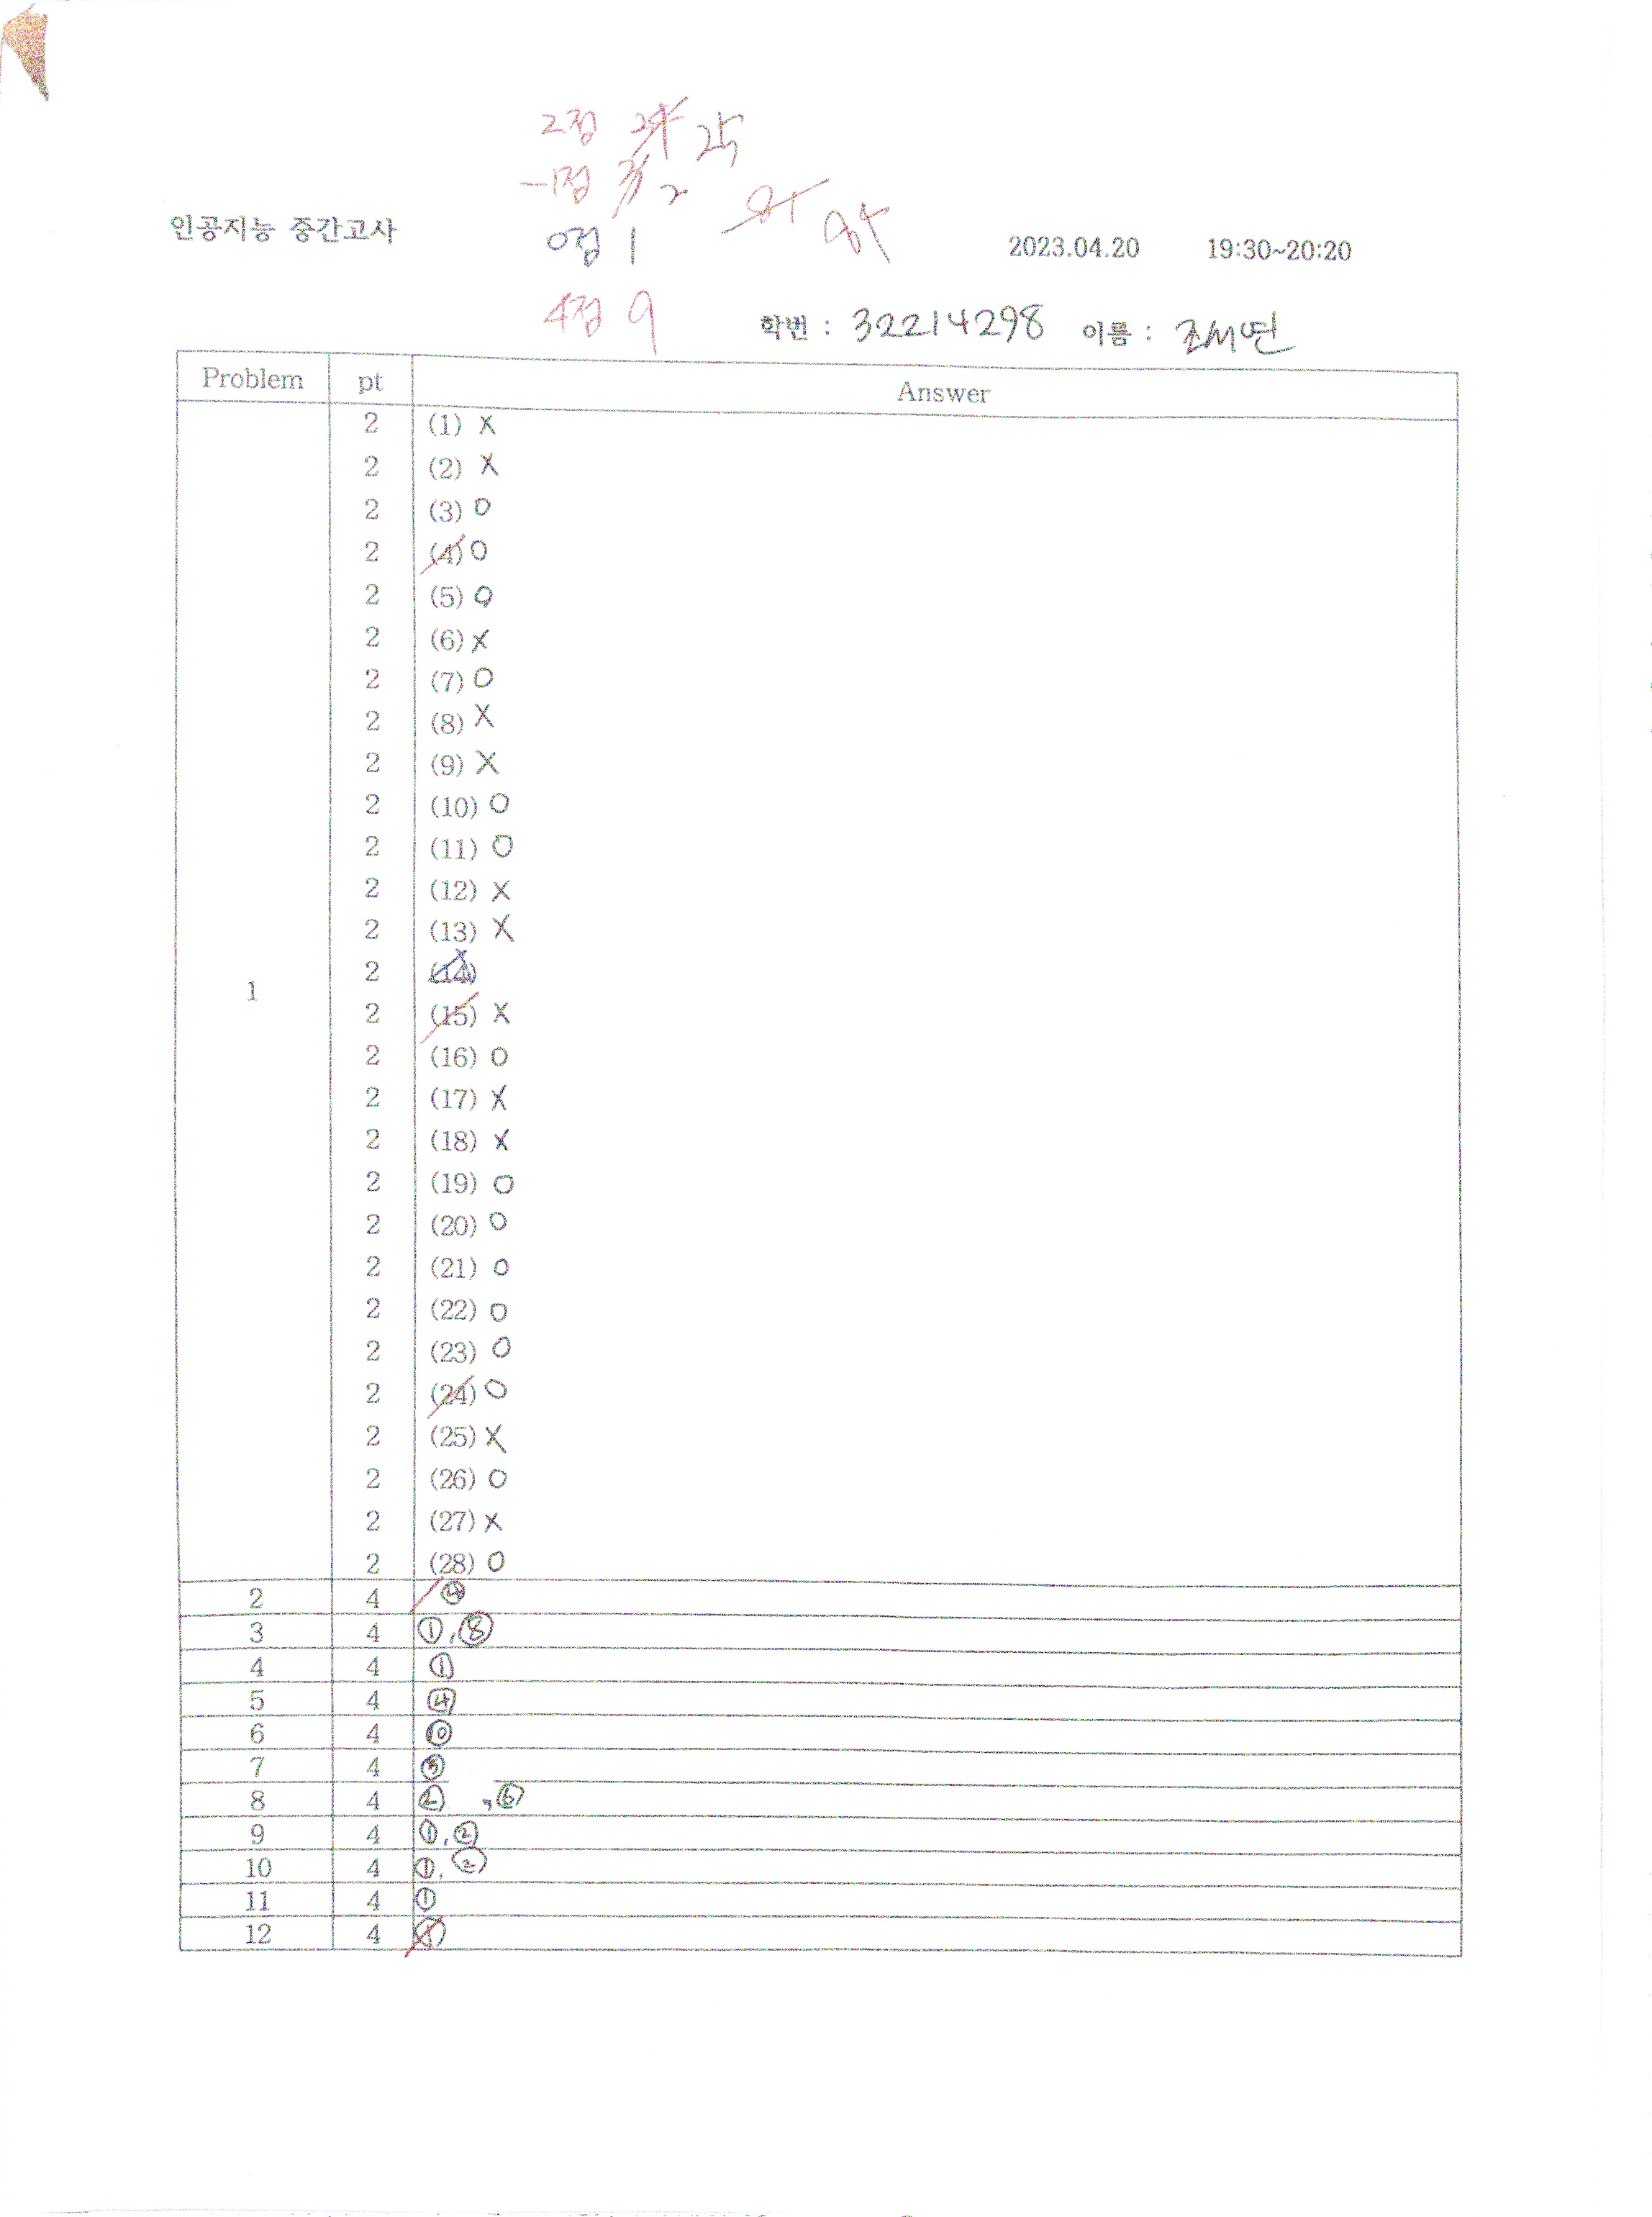 2점 25
-1점 2
인공지능 중간고사 0점 1 2023.04.20 19:30~20:20
4점 9 학번 : 32214298 이름 : 조서연
Problem pt Answer
1
2 (1) X
2 (2) X
2 (3) O
2 (4) O
2 (5) O
2 (6) X
2 (7) O
2 (8) X
2 (9) X
2 (10) O
2 (11) O
2 (12) X
2 (13) X
2 (14)
2 (15) X
2 (16) O
2 (17) X
2 (18) X
2 (19) O
2 (20) O
2 (21) O
2 (22) O
2 (23) O
2 (24) O
2 (25) X
2 (26) O
2 (27) X
2 (28) O
2 4 ④
3 4 ①, ⑧
4 4 ①
5 4 ④
6 4
7 4 ③
8 4 ② , ⑥
9 4 ①, ②
10 4 ①, ②
11 4 ①
12 4